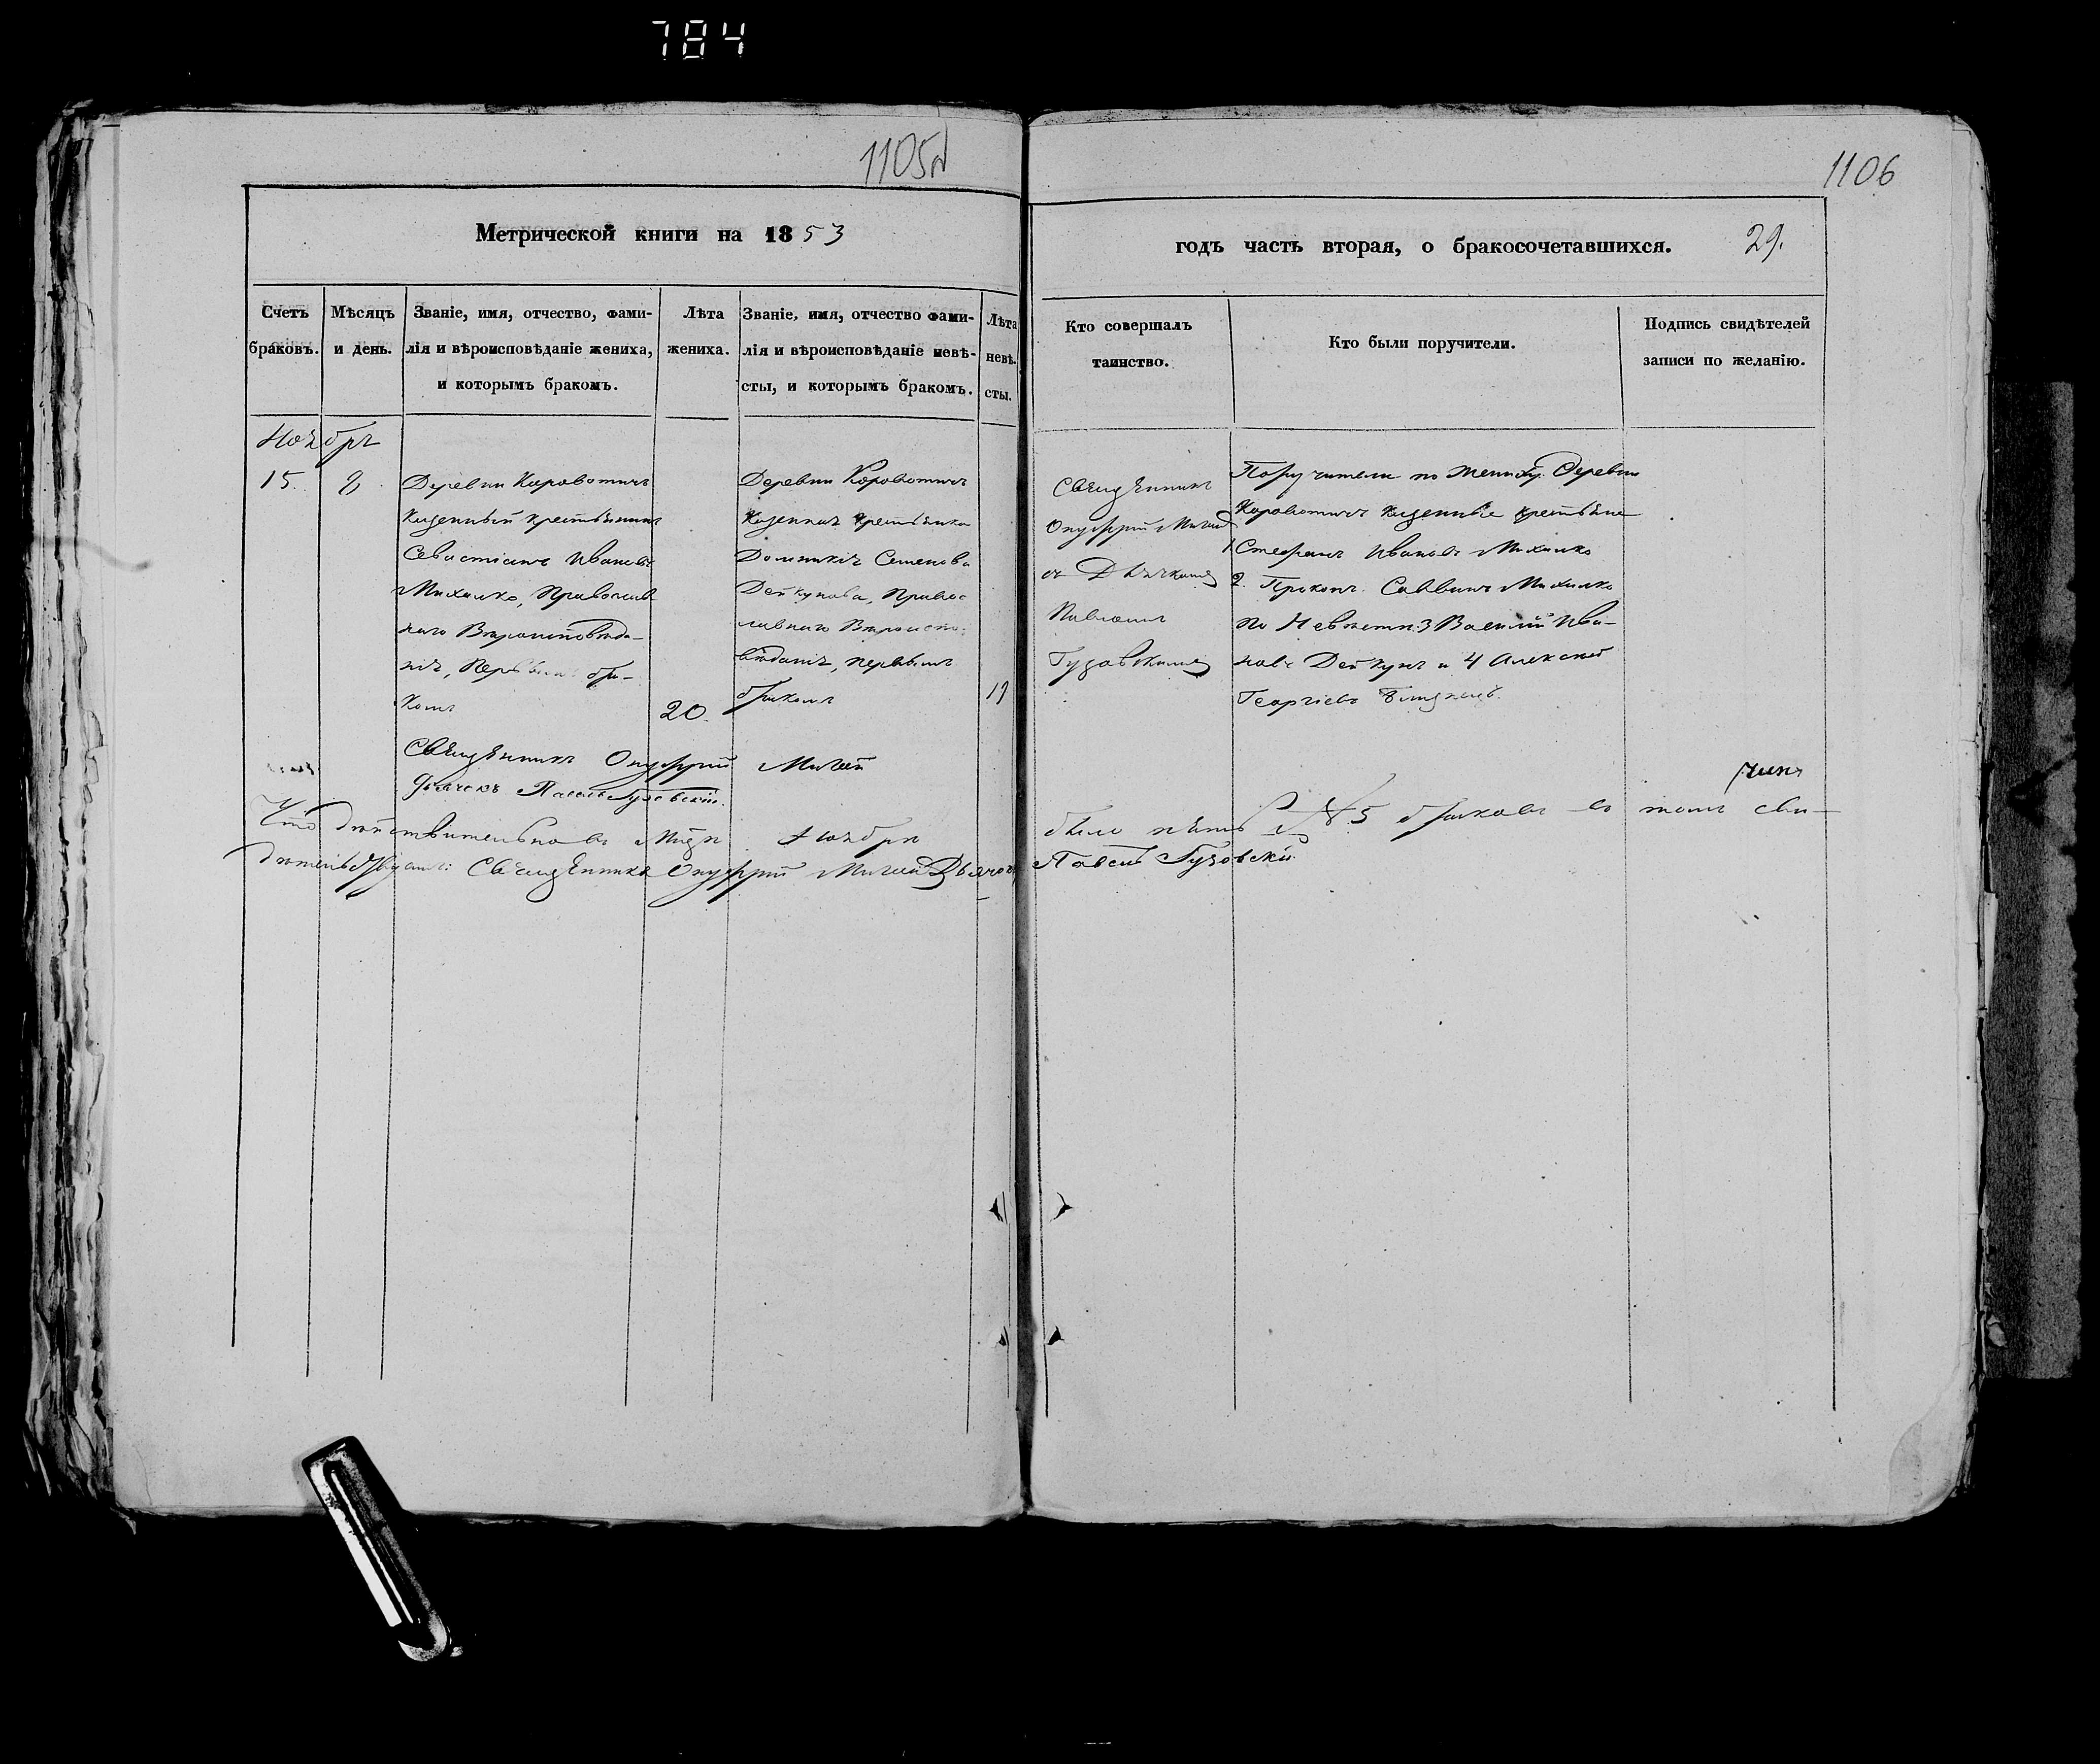 784
1105
1106
Метрической книги на 1853
годъ часть вторая, о бракосочетавшихся.
29.
Счетъ браковъ.
Мѣсяцъ и день.
Званіе, имя, отчество, фами-
лія и вѣроисповѣданіе жениха,
и которымъ бракомъ.
Лѣта
жениха.
Званіе, имя, отчество фами-
лія и вѣроисповѣданіе невѣ-
сты, и которымъ бракомъ.
Лѣта
невѣ-
сты.
Кто совершалъ
таинство.
Кто были поручители.
Подпись свидѣтелей
записи по желанію.
Ноябрь
15.
8
Деревни Коровотичъ
Казенный крестьянинъ
Севастіанъ Ивановъ
Михалко, Православ
наго Вѣроисповѣда-
нія, Первымъ бра-
комъ
20.
Деревни Коровотичъ
Казенная крестьянка
Домникія Семенова
Дейкунова, Правос
лавнаго Вѣроиспо-
вѣданія, первымъ
бракомъ
19
Священникъ
Онуфрій Мигай
съ Дьячкомъ
Павломъ
Гузовскимъ
Поручители по жениху: Деревни
Коровотичъ казенные крестьяне
1 Стефанъ Ивановъ Михалко
2. Прокопъ Саввинъ Михалко
по Невѣсте: 3 Василій Ива-
новъ Дейкунъ и 4 Алексѣй
Георгіевъ
Священникъ Онуфрій Мигай
Дьячокъ Павелъ Гузовскій.
Что дѣйствительно въ Ноябрѣ
было пять № 5 браковъ въ томъ сви-
дѣтельствуемъ: Священникъ Онуфрій Мигай Дьячокъ
Павелъ Гузовскій